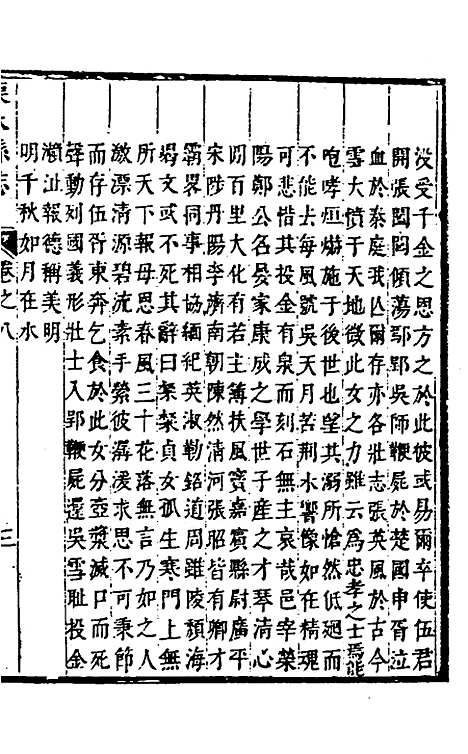 没受千金之恩方之於此彼或易爾卒使伍君
開張闔閭傾蕩鄢郢吳師鞭屍於楚國申胥泣
血於秦庭我亡爾存亦各壯志張英風於古今
雪大憤于天地微此女之力雖云爲忠孝之士焉能
咆哮烜爀施于後世也望其溺所愴然低廻而
不能去每風號吳天月苦荆水響像如在精魂
可悲惜其投金有泉而刻石無主哀哉邑宰滎
陽鄭公名晏家康成之學世子產之才琴清心
閒百里大化有若主簿扶風竇嘉賓縣尉廣平
宋陟丹陽李濟南朝陳然清河張昭皆有卿才
霸畧同事相協緬紀英淑勒銘道周雖陵頹海
竭文或不死其辭曰粲粲貞女孤生寒門上無
所天下報母恩春風三十花落無言乃如之人
激漂清源碧流素手縈彼潺湲求思不可秉節
而存伍胥東奔乞食於此女分壺漿滅口而死
聲動列國義形壯士入郢鞭屍還吳雪耻投金
瀨沚報德稱美明
明千秋如月在水
卷之八
三